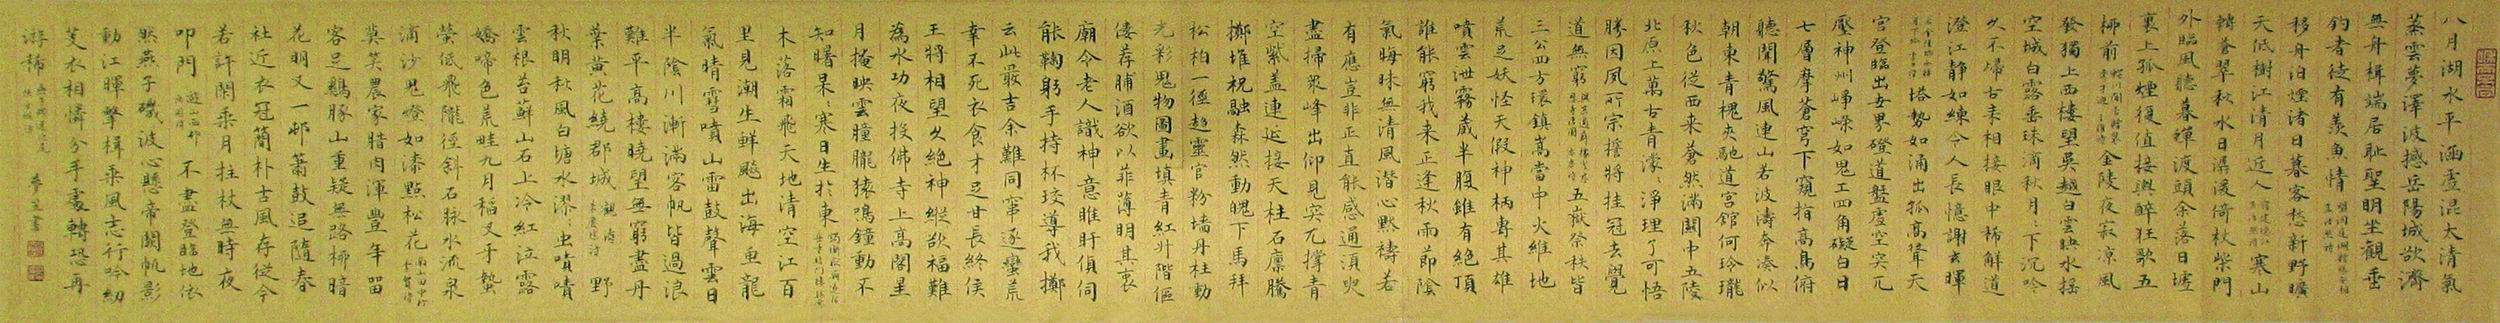 八月湖水平涵虛混太清氣
蒸雲夢澤波撼岳陽城欲濟
無舟楫端居恥聖明坐觀垂
釣者徒有羨魚情 望洞庭湖贈張丞相 孟浩然詩
移舟泊煙渚日暮客愁新野曠
天低樹江清月近人 宿建德江 孟浩然詩 寒山
轉蒼翠秋水日潺湲倚杖柴門
外臨風聽暮蟬渡頭余落日墟
裏上孤煙復值接輿醉狂歌五
柳前 輞川閑居贈裴秀才迪 王維詩 金陵夜寂涼風
發獨上西樓望吳越白雲映水搖
空城白露垂珠滴秋月月下沉吟
久不歸古來相接眼中稀解道
澄江靜如練令人長憶謝玄暉
金陵城西樓月下吟 李白詩 塔勢如涌出孤高聳天
宮登臨出世界磴道盤虛空突兀
壓神州崢嶸如鬼工四角礙白日
七層摩蒼穹下窺指高鳥俯
聽聞驚風連山若波濤奔湊似
朝東青槐夾馳道宮館何玲瓏
秋色從西來蒼然滿關中五陵
北原上萬古青濛濛淨理了可悟
勝因夙所宗誓將挂冠去覺
道無窮 五嶽祭秩皆
三公四方環鎮嵩當中火維地
荒足妖怪天假神柄專其雄
噴雲泄霧藏半腹雖有絕頂
誰能窮我來正逢秋雨節陰
氣晦昧無清風潛心默禱若
有應豈非正直能感通須臾
盡掃眾峰出仰見突兀撐青
空紫蓋連延接天柱石廩騰
擲堆祝融森然動魄下馬拜
松柏一徑趨靈宮粉墻丹柱動
光彩鬼物圖畫填青紅升階傴
僂荐脯酒欲以菲薄明其衷
廟令老人識神意睢盱偵伺
能鞠躬手持杯珓導我擲
云此最吉余難同竄逐蠻荒
幸不死衣食才足甘長終侯
王將相望久絕神縱欲福難
為水功夜投佛寺上高閣星
月掩映雲朣朧猿鳴鐘動不
知曙杲杲寒日生於東
木落霜飛天地清空江百
里見潮生鮮飈出海魚龍
氣晴雪噴山雷鼓聲雲日
半陰川漸滿客帆皆過浪
難平高樓曉望無窮盡丹
葉黃花繞郡城 觀濤 朱慶餘詩 野
秋明秋風白塘水漻漻虫嘖嘖
雲根苔蘚山石上冷紅泣露
嬌啼色荒畦九月稻叉牙蟄
螢低飛隴徑斜石脉水流泉
滴沙鬼燈如漆點松花 南山田中行 李賀詩
莫笑農家腊肉渾豐年留
客足雞豚山重疑無路柳暗
花明又一邨簫鼓追隨春
社近衣冠簡朴古風存從今
若許閑乘月拄杖無時夜
叩門 遊山西邨 陸游詩 不盡登臨地依
然燕子磯波心懸帝闕帆影
動江暉擊楫乘風志行吟紉
芰衣相憐分手處轉恐再
游稀